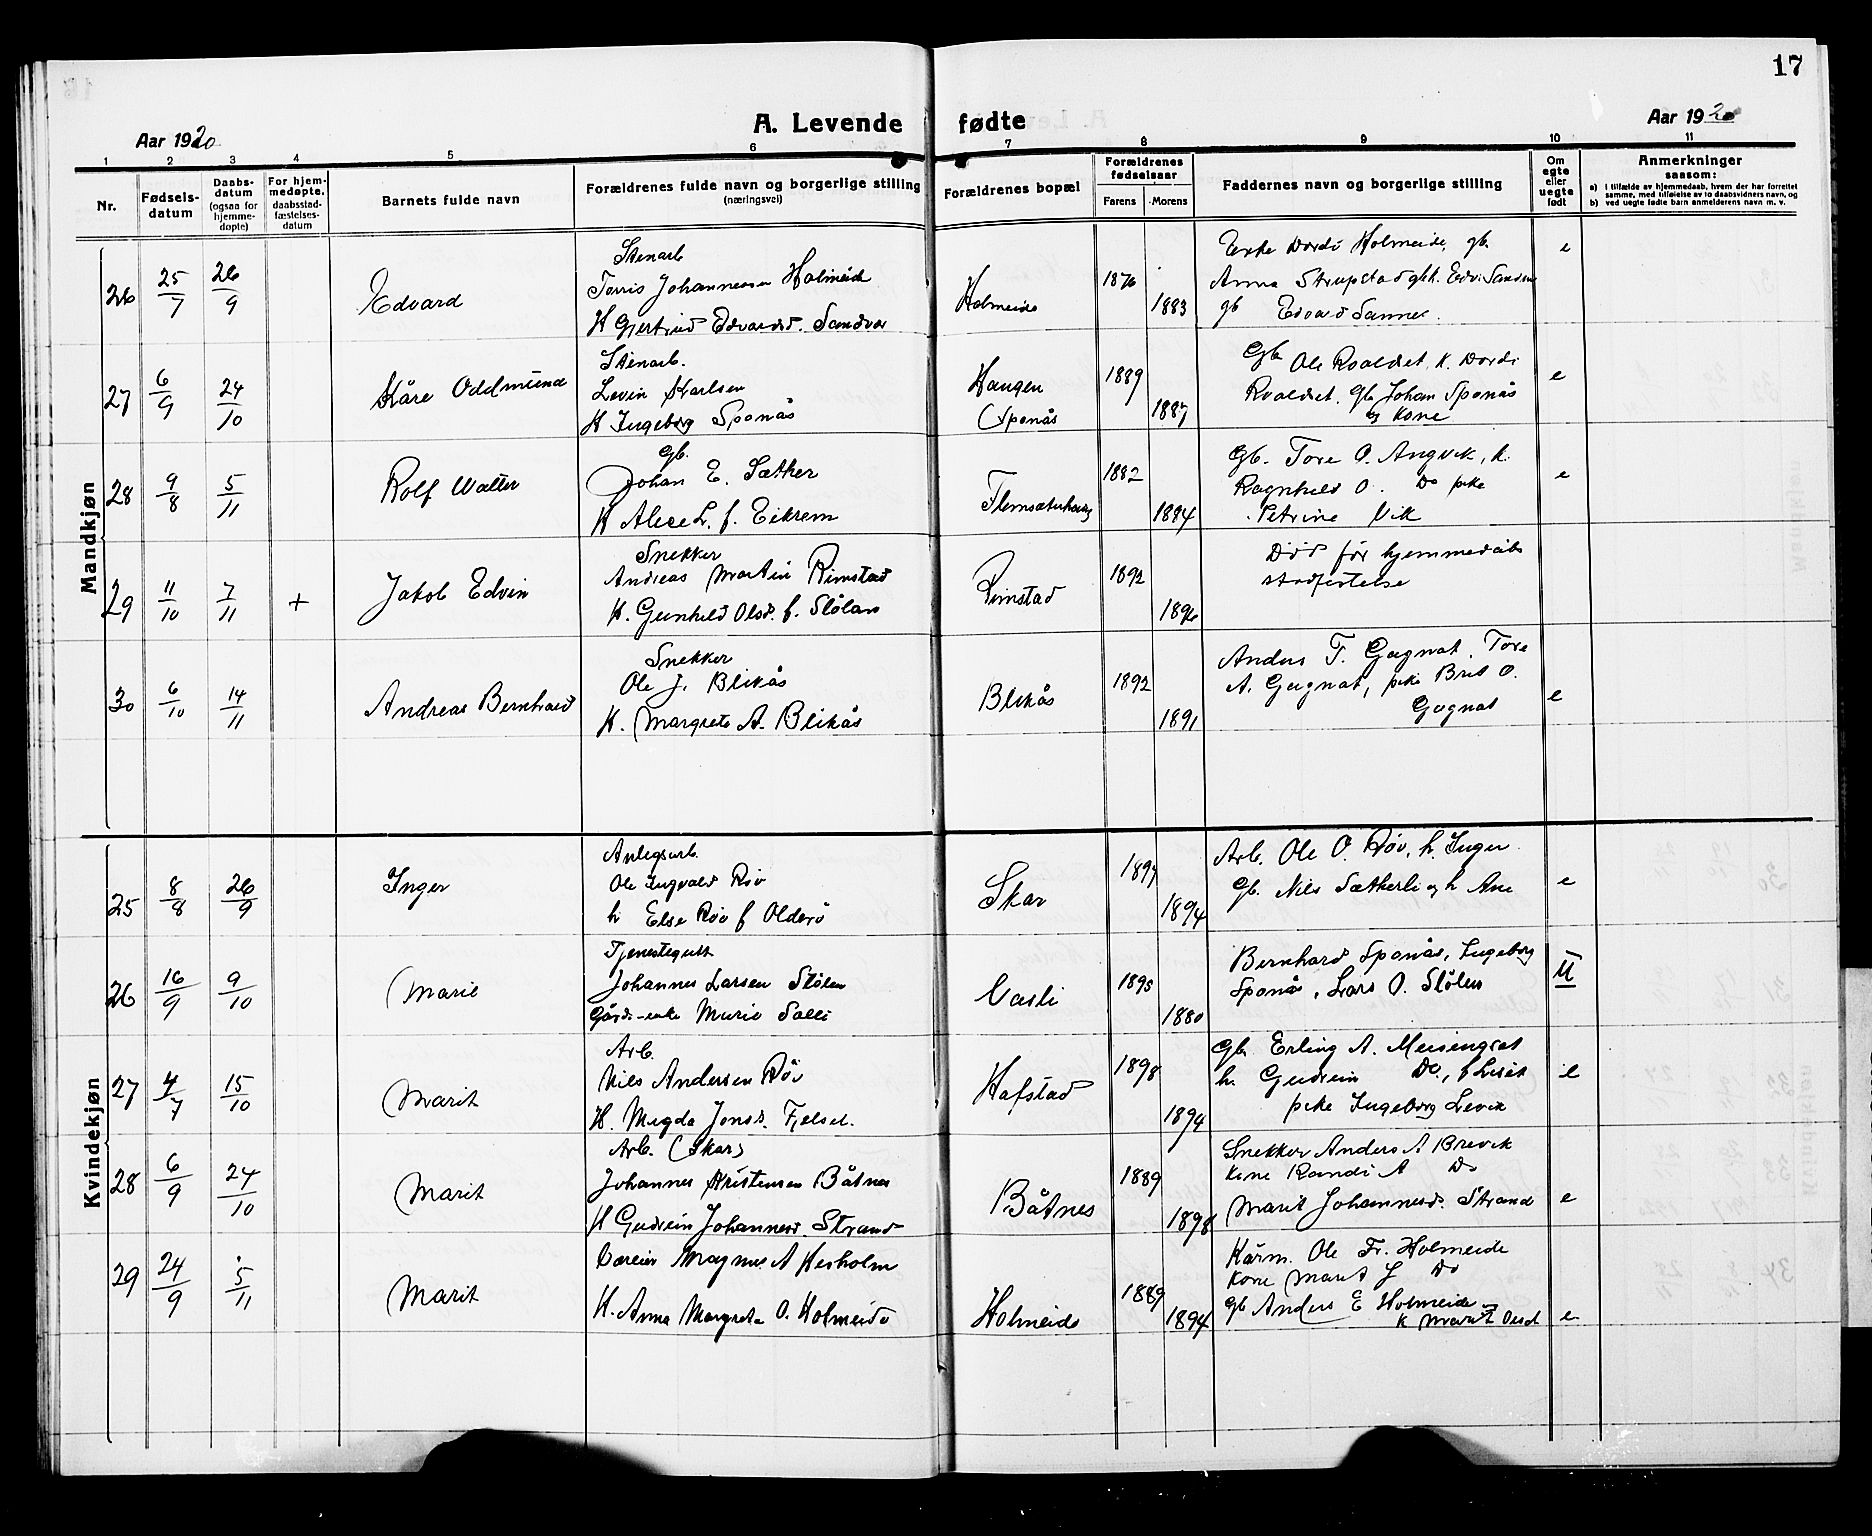 17
Aar 1920
A. Levende fødte
Aar 1920
1 2 3 4 5 6 7 8 9 10 11
Nr.
Fødsels-
datum
Daabs-
datum
(ogsaa for
hjemme-
døpte)
For hjem-
medøpte,
daabsstad-
fæstelses-
datum
Barnets fulde navn
Forældrenes fulde navn og borgerlige stilling
(næringsvei)
Forældrenes bopæl
Forældrenes
fødselsaar
Farens
Morens
Faddernes navn og borgerlige stilling
Om
egte
eller
uegte
født
Anmerkninger
saasom:
a) i tilfælde av hjemmedaab, hvem der har forrettet
samme, med tilføielse av to daabsvidners navn, og
b) ved uegte fødte barn anmelderens navn m. v.
Mandkjøn
26 25/7 26/9 Edvard
Stenarb
Johannessen Holmeide
K Gjertrud Edvardsd. Sandvær
Holmeide
1876
1883
Enke Dordi Holmeide, gb.
Anna
gb Edvard
e
27 6/9 24/10 Kåre Oddmund
Stenarb.
Levin Karlsen
K Ingeborg Sponås
Haugen
Sponås
1889
1887
Gb Ole Roaldset, K. Dordi
Roaldset. Gb Johan Sponås
og Kone
e
28 9/8 5/11 Rolf Walter
gb.
Johan E. Sæther
K f. Eikrem
1882
1884
Gb. Tore O. Angvik, k.
Ragnhild O. Do pike
Petrine Vik
e
29 11/10 7/11 + Jakob Edvin
Snekker
Andreas Martin Rimstad
K. Gunhild Olsd. f. Stølan
Rimstad
1892
1896
Død før hjemmedåbs
stadfestelse
30 6/10 14/11 Andreas Bernhard
Snekker
Ole J. Blikås
K. Margrete A. Blikås
Blikås
1892
1891
Anders T. Gagnat, Tore
A. Gagnat, pike Brit O.
Gagnat
e
Kvindekjøn
25 8/8 26/9 Inger
Anlegsarb.
Ole Ingvald Røv
h Else Røv f Olderø
Skar
1897
1894
Arb. Ole O. Røv, h. Inger
Gb. Nils Sætherli og h Ane
e
26 16/9 9/10 Marie
Tjenestegutt
Johannes Larsen Stølen
Marie
1895
1880
Bernhard Sponås, Ingeborg
Sponås, Lars O. Stølen
U
27 4/7 15/10 Marit
Arb.
Nils Andersen Røv
K. Magda Jonsd.
Hafstad
1898
1894
Gb Erling A. Meisingset
h. Gudrun Do,
pike Ingeborg Levik
e
28 6/9 24/10 Marit
Arb. (Skar)
Johannes Kristensen Båtnes
K Gudrun Johannesd. Strand
Båtnes
1889
1898
Snekker Anders A Brevik
Kone Randi A Do
Marit Johannesd. Strand
e
29 24/9 5/11 Marit
Magnus A
K. Anna Margreta O. Holmeide
Holmeide
1889
1894
Ole Fr. Holmeide
Kone Marit J Do
gb Anders E Holmeide
K Marit Olsd
e